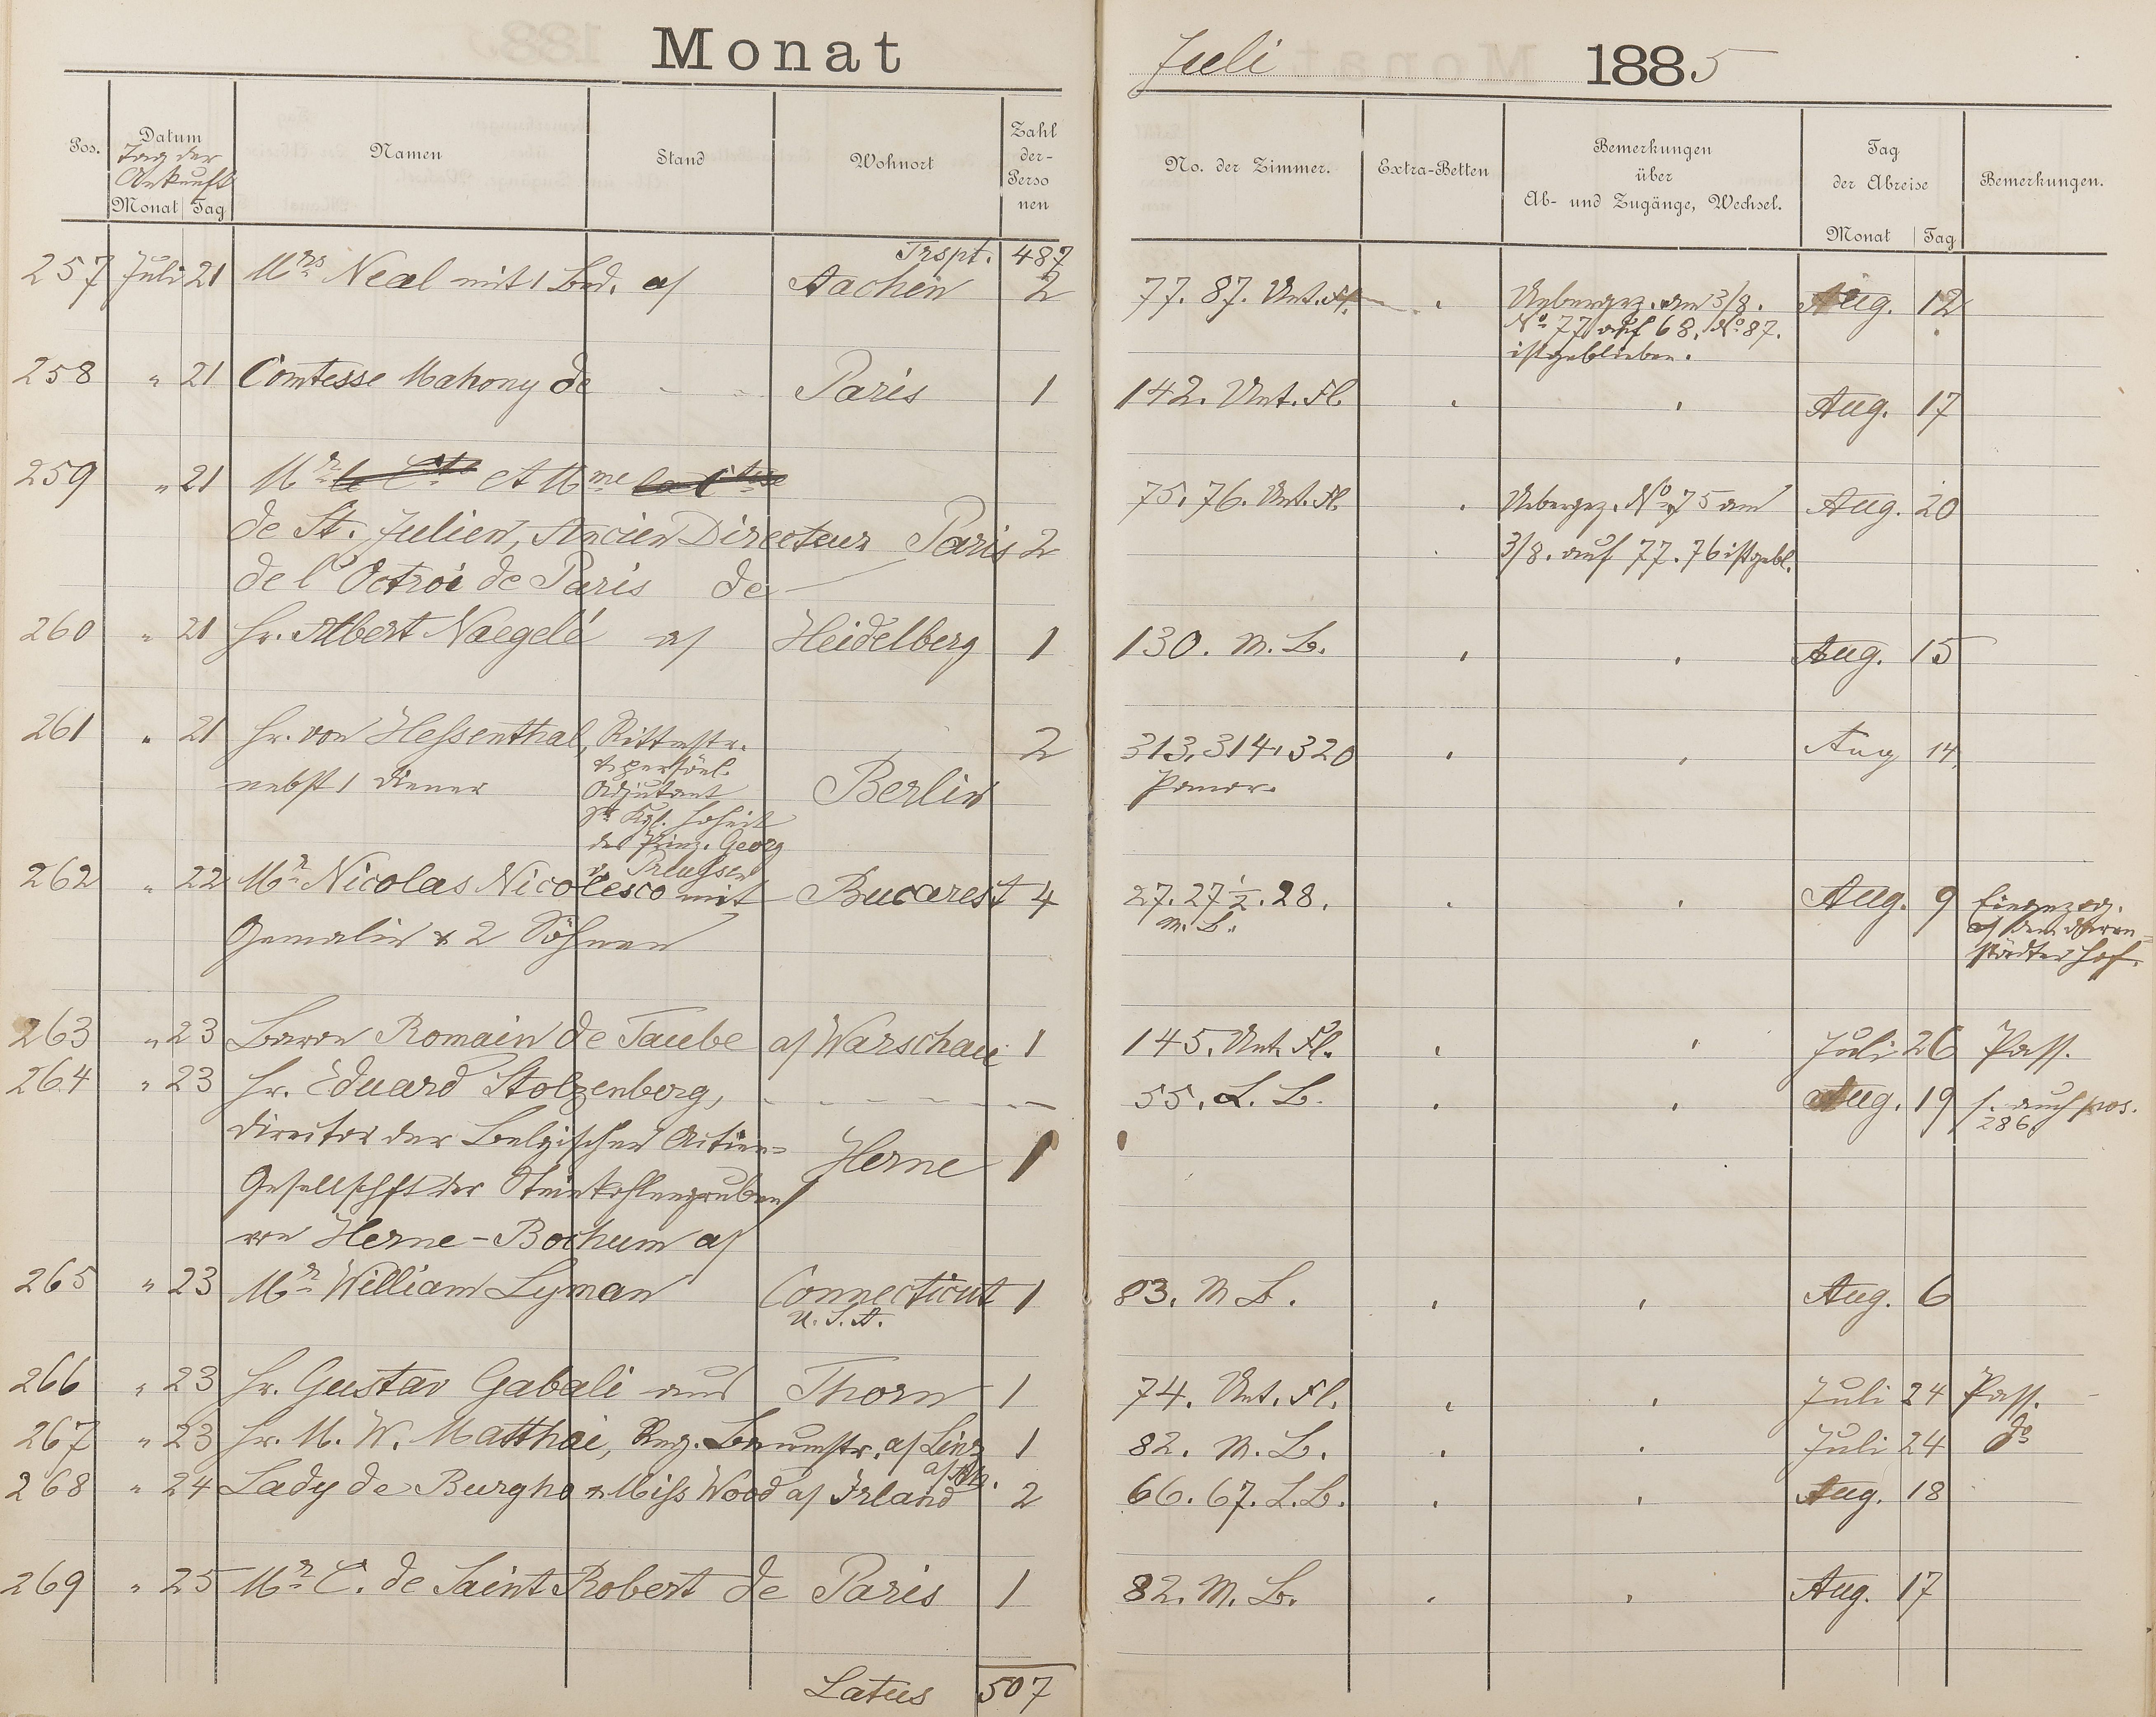 Monat Juli 1885
Pos. Datum Namen Stand Wohnort Zahl der Personen No. der Zimmer. Extra-Betten Bemerkungen über Ab- und Zugänge, Wechsel. Tag der Abreise Bemerkungen.
Tag der
Ankunft
Monat Tag Monat Tag
Trspt. 487
257 Juli 21 Mrs Neal mit 1 Bed. a/ Aachen 2 77. 87. Unt. Fl. Uebergez. am 3/8. Aug. 12
No 77 auf 68. No 87.
ist geblieben.
258 " 21 Comtesse Mahony de Paris 1 142. Unt. Fl. Aug. 17
259 " 21 Mr le Cte et Mme la Ctesse 75. 76. Unt. Fl. Uebergez. No 75 am Aug. 20
de St. Julien, Ancien Directeur Paris 2 3/8. auf 77. 76 ist gebl.
de l'Octroi de Paris de
260 " 21 Hr. Albert Naegelé a/ Heidelberg 1 130. M. B. Aug. 15
261 " 21 Hr. von Hessenthal, Rittmstr. 2 313. 314. 320 Aug 14.
nebst 1 Diener & persönl. Berlin Panor.
Adjutant
Sr Kgl. Hoheit
des Prinz. Georg
v. Preussen
262 " 22 Mr Nicolas Nicolesco mit Bucarest 4 27. 27 1/2. 28. Aug. 9 Eingezog.
M. B.
Gemalin & 2 Söhnen städter Hof.
263 " 23 Baron Romain de Taube a/ Warschau 1 145. Unt. Fl. Juli 26 Pass.
264 " 23 Hr. Eduard Stolzenberg, 55. L. B. Aug. 19 s. auch pos.
286
Director der Belgischen Actien-
Gesellschft der Steinkohlengruben Herne 1
von Herne-Bochum a/
265 " 23 Mr William Lyman Connecticut 1 83. M B. Aug. 6
U. S. A.
266 " 23 Hr. Gustav Gabali aus Thorn 1 74. Unt. Fl. Juli 24 Pass.
267 " 23 Hr. M. W. Matthai, Reg. Baumstr. a/ Linz 1 82. M. B. Juli 24 do
a/Rh.
268 " 24 Lady de Burgho & Miss Wood a/ Irland 2 66. 67. L. B. Aug. 18
269 " 25 Mr C. de Saint Robert de Paris 1 82. M. B. Aug. 17
Latus 507